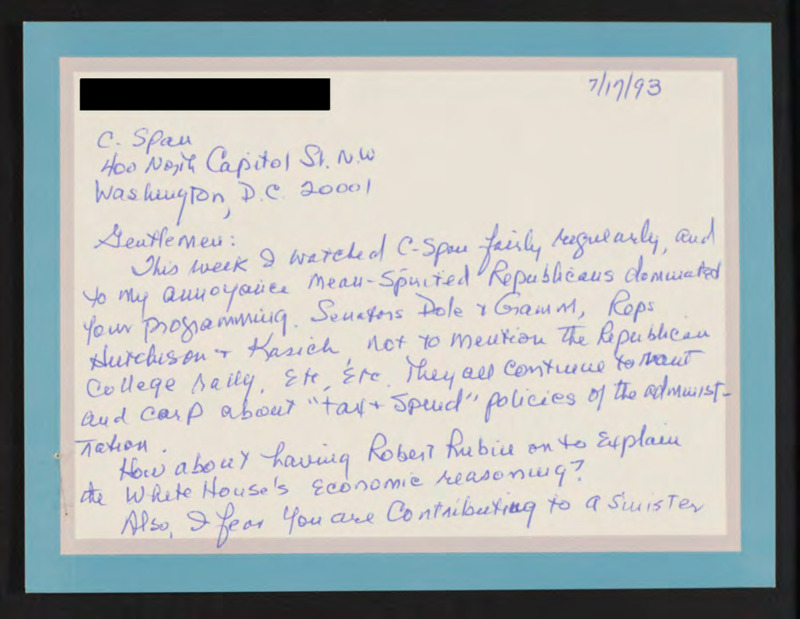 7/17/93
C. Span
400 North Capitol St. N.W
Washington, D.C. 20001
Gentlemen:
This week I watched C-Span fairly regularly, and
to my annoyance mean-spirited Republicans dominated
your programming. Senators Dole & Gramm, Reps
Hutchison & Kasich, not to mention the Republican
College rally, Etc, Etc. They all continue to rant
and carp about "tax & spend" policies of the administ-
ration.
How about having Robert Rubin on to Explain
the White House's economic reasoning?
Also, I fear you are contributing to a sinister